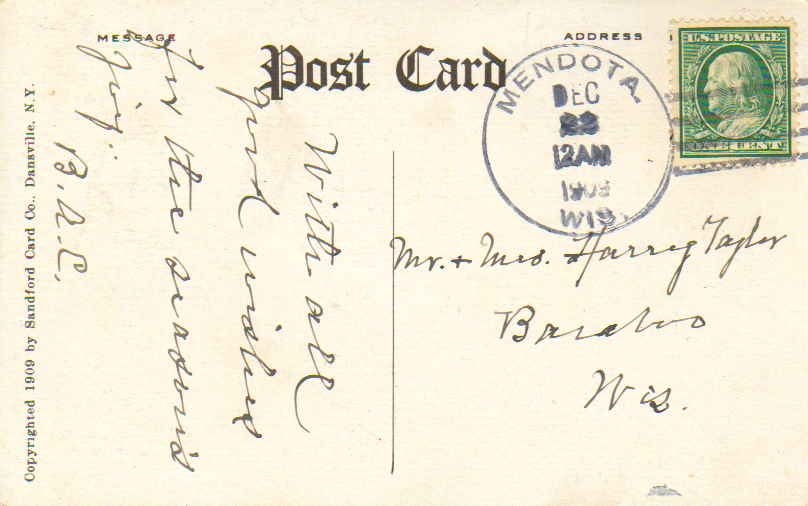 MESSAGE
Post Card
ADDRESS
U.S. POSTAGE
ONE CENT
MENDOTA.
DEC
12 AM
1909
WIS.
With all
good wishes
for the season's
joy.
B. A. C.
Mr. + Mrs. Harrey Taylor
Baraboo
Wis.
Copyrighted 1909 by Sandford Card Co., Dansville, N.Y.